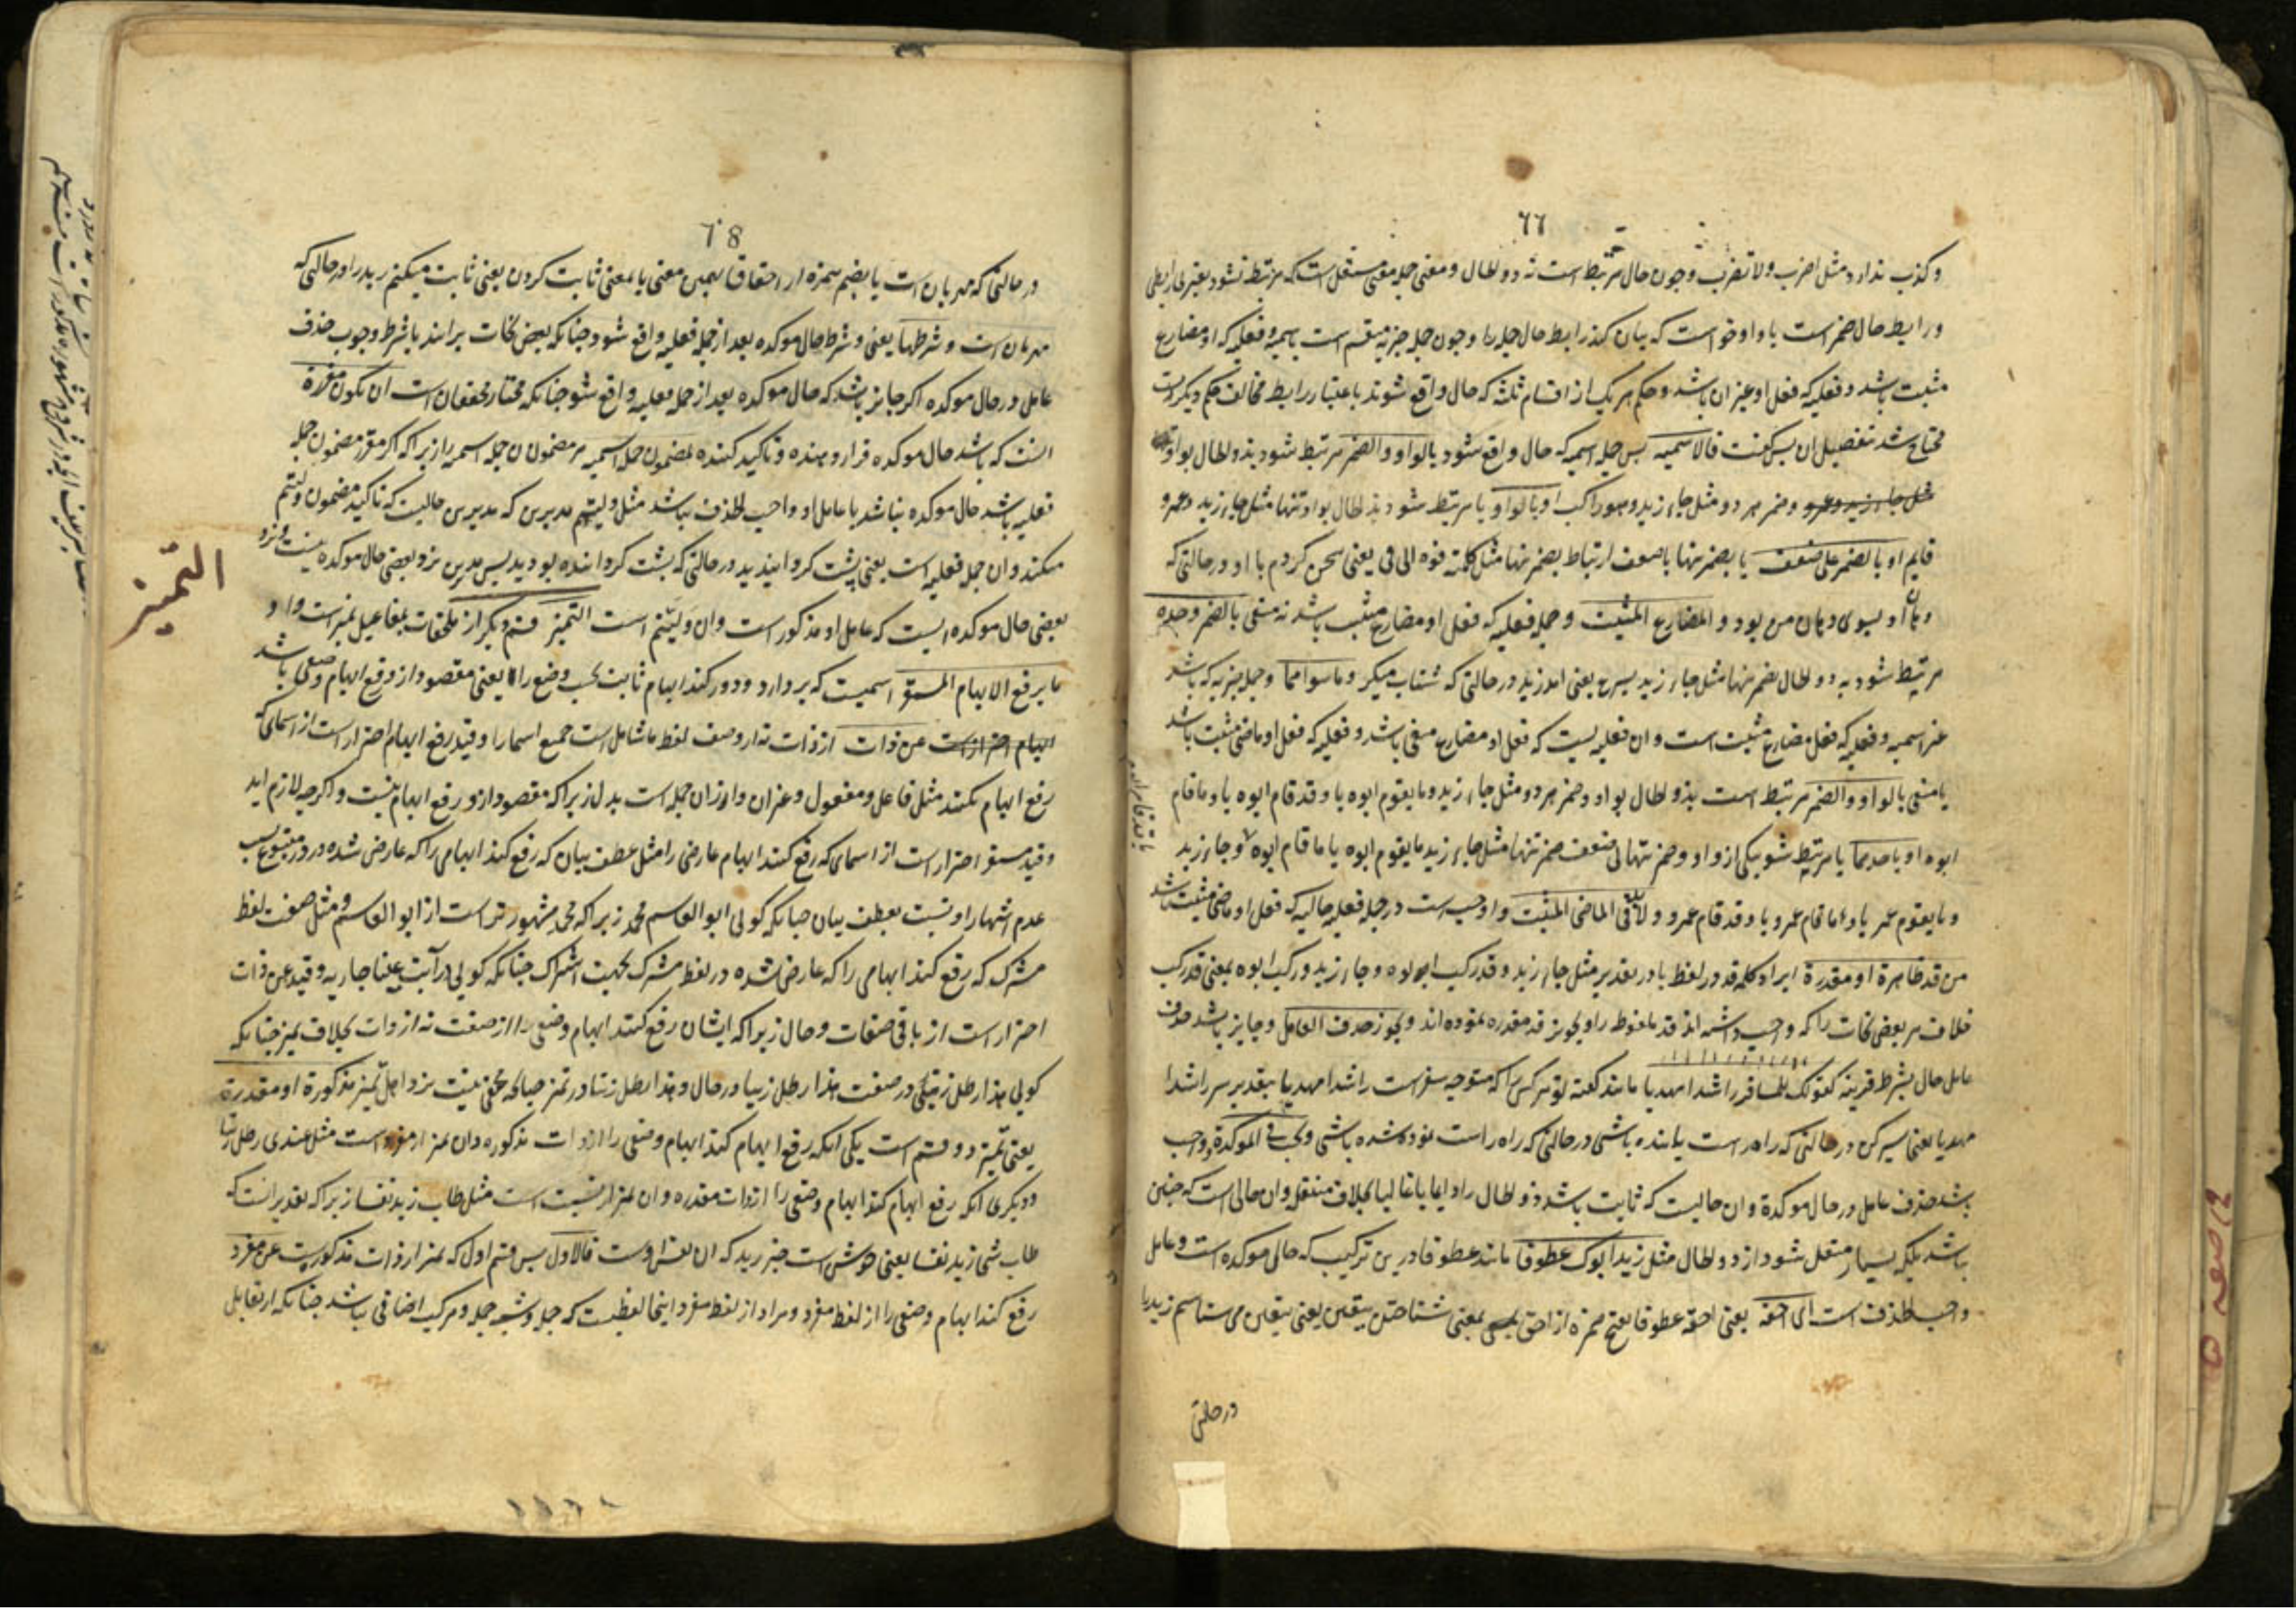 ٦٦
وکذب ندارد مثل اضرب ولا تضرب وچون حال مرتبط است به ذوالحال ومعنی جمله معنی مستقل است که مرتبط نشود بغیر بی رابطی
ورابط حال ضمیر است یا واو خواست که بیان کند رابط حال جمله را وچون جمله خبریه منقسم است باسمیه وفعلیه که او مضارع
مثبت باشد وفعلیه که فعل او غیر ان باشد وحکم هر یک از اقسام ثلثه که حال واقع شوند باعتبار رابط مخالف حکم دیگریست
محتاج شد بتفصیل ان پس گفت فالاسمیه پس جمله اسمیه که حال واقع شود بالواو والضمیر مرتبط شود بذوالحال بواو
وضمیر هر دو مثل جاء زید وهو راکب او بالواو یا مرتبط شود بذوالحال بواو تنها مثل جاء زید وعمرو
قایم او بالضمیر علی ضعف یا بضمیر تنها با ضعف ارتباط بضمیر تنها مثل کلمته فوه الی فی یعنی سخن کردم با او درحالتی که
دهان او بسوی دهان من بود والمضارع المثبت وجمله فعلیه که فعل او مضارع مثبت باشد نه منفی بالضمیر وحده
مرتبط شود به ذوالحال بضمیر تنها مثل جاء زید یسرع یعنی امد زید درحالتی که شتاب میکرد وما سواهما وجمله خبریه که باشد
غیر اسمیه وفعلیه که فعل مضارع مثبت است وان فعلیه ایست که فعل او مضارع منفی باشد وفعلیه که فعل او ماضی مثبت باشد
یا منفی بالواو والضمیر مرتبط است بذوالحال بواو وضمیر هر دو مثل جاء زید وما یقوم ابوه یا وقد قام ابوه یا وما قام
ابوه او باحدهما یا مرتبط شود بیکی از واو وضمیر تنها بی ضعف ضمیر تنها مثل جاء زید ما یقوم ابوه یا ما قام ابوه وجاء زید
وما یقوم عمرو یا وما قام عمرو یا وقد قام عمرو ولا بد فی الماضی المثبت وواجب است در جمله فعلیه حالیه که فعل او ماضی مثبت باشد
من قد ظاهرة او مقدرة ایراد کلمه قد در لفظ یا در تقدیر مثل جاء زید وقد رکب ابوه وجاء زید ورکب ابوه بمعنی قد رکب
خلاف مر بعضی نحات را که واجب داشته اند قد ملفوظ را وتجویز قد مقدره ننموده اند ویجوز حذف العامل وجایز باشد حذف
عامل حال بشرط قرینه کقولک للمسافر راشدا مهدیا مانند گفته تو مر کسی را که متوجه سفر است راشدا مهدیا بتقدیر سر راشدا
مهدیا یعنی سیر کن درحالتی که راه راست یابنده باشی درحالتی که راه راست نموده شده باشی ویجب فی الموکدة وواجب
باشد حذف عامل در حال موکدة وان حالیست که ثابت باشد ذوالحال را دایما یا غالبا بخلاف منتقل وان حالی است که چنین
باشد بلکه بسیار منتقل شود از ذوالحال مثل زید ابوک عطوفا مانند عطوفا درین ترکیب که حالی موکده است وعامل
واجب الحذف است ای احقه یعنی احقه عطوفا بفتح همزه از احق بمعنی شناختن بیقین یعنی بیقین می شناسم زید را
درحالتی
٦٨
درحالتی که مهربان است یا بضم همزه از احقاق بهمین معنی یا بمعنی ثابت کردن یعنی ثابت میکنم زید را درحالتی که
مهربان است وشرطها یعنی وشرط حال موکده بعد از جمله فعلیه واقع شود چنانکه بعض نحات برانند یا شرط وجوب حذف
عامل در حال موکده اگر جایز باشد که حال موکده بعد از جمله فعلیه واقع شود چنانکه مختار محققان است ان تکون مقررة
انست که باشد حال موکده قرار دهنده وتاکید کننده لمضمون جمله اسمیه مر مضمون ان جمله اسمیه را زیرا که اگر مقرر مضمون جمله
فعلیه باشد حال موکده نباشد یا عامل او واجب الحذف نباشد مثل ولیتم مدبرین که مدبرین حالیست که تاکید مضمون ولیتم
میکند وان جمله فعلیه است یعنی پشت گردانیدید درحالتی که پشت گرداننده بودید پس مدبرین نزد بعضی حال موکده نیست ونزد
بعضی حال موکده ایست که عامل او مذکور است وان ولیتم است التمیز قسم دیگر از ملحقات بمفاعیل تمیز است واو
ما یرفع الابهام المستقر اسمیست که بردارد ودور کند ابهام ثابت بحسب وضع را یعنی مقصود از او رفع ابهام وضعی باشد
عن ذات از ذات نه از وصف لفظ ما شامل است جمیع اسما را وقید رفع ابهام احتراز است از اسمای که
رفع ابهام نکنند مثل فاعل ومفعول وغیر ان وازان جمله است بدل زیرا که مقصود از او رفع ابهام نیست واگرچه لازم اید
وقید مستقر احتراز است از اسمای که رفع کنند ابهام عارضی را مثل عطف بیان که رفع کند ابهامی را که عارض شده در متبوع بسبب
عدم اشتهار او نسبت بعطف بیان چنانکه گویی ابوالقاسم محمد زیرا که محمد مشهورتر است از ابوالقاسم ومثل صفت لفظ
مشترک که رفع کند ابهامی را که عارض شده در لفظ مشترک بجهت اشتراک چنانکه گویی رایت عینا جاریه وقید عن ذات
احتراز است از باقی صفات وحال زیرا که ایشان رفع کنند ابهام وضعی را از صفت نه از ذات بخلاف تمیز چنانکه
گویی هذا رطل زیتی در صفت هذا رطل زیتا در حال وهذا رطل زیتا در تمیز چنانکه مخفی نیست نزد اهل تمیز مذکورة او مقدرة
یعنی تمیز دو قسم است یکی انکه رفع ابهام کند ابهام وضعی را از ذات مذکوره وان تمیز از مفرد است مثل عندی رطل زیتا
ودیگری انکه رفع ابهام کند ابهام وضعی را از ذات مقدره وان تمیز از نسبت است مثل طاب زید نفسا زیرا که تقدیر انست که
طاب شی زید نفسا یعنی خوش است چیز زید که ان نفس اوست فالاول پس قسم اول که تمیز از ذات مذکوره است عن مفرد
رفع کند ابهام وضعی را از لفظ مفرد ومراد از لفظ مفرد اینجا لفظیست که جمله وشبه جمله ومرکب اضافی نباشد چنانکه از تقابل
التمیز